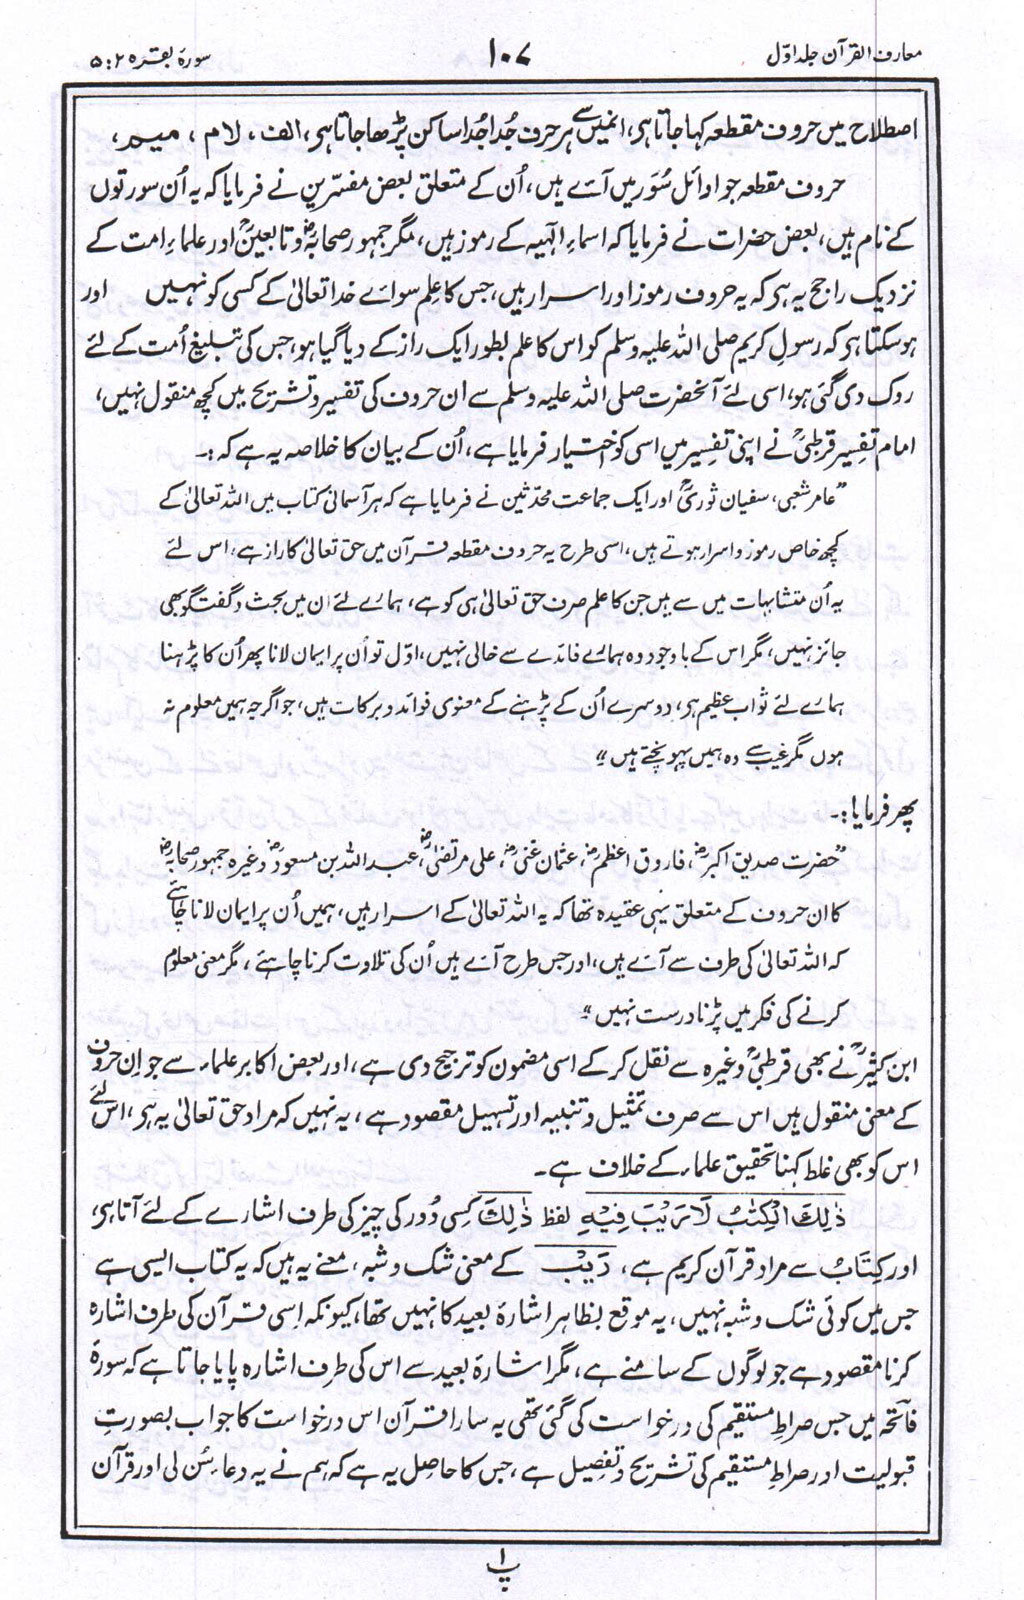 معارف القرآن جلد اوّل
۱۰۷
سورۂ بقرہ ۲ : ۵
اصطلاح میں حروف مقطعہ کہا جاتا ہی، انمیں سے ہر حرف جُدا جُدا ساکن پڑھا جاتا ہی، الف، لام، میم،
حروف مقطعہ جو اوائل سُوَر میں آئے ہیں، اُن کے متعلق بعض مفسّرین نے فرمایا کہ یہ اُن سورتوں
کے نام ہیں، بعض حضرات نے فرمایا کہ اسماء الٰہیہ کے رموز ہیں، مگر جمہور صحابہؓ و تابعینؒ اور علماءِ امت کے
نزدیک راجح یہ ہی کہ یہ حروف رموز اور اسرار ہیں، جس کا علم سوائے خدا تعالیٰ کے کسی کو نہیں اور
ہو سکتا ہی کہ رسول کریم صلی اللہ علیہ وسلم کو اس کا علم بطور ایک راز کے دیا گیا ہو، جس کی تبلیغ اُمت کے لئے
روک دی گئی ہو، اسی لئے آنحضرت صلی اللہ علیہ وسلم سے ان حروف کی تفسیر و تشریح میں کچھ منقول نہیں،
امام تفسیر قرطبیؒ نے اپنی تفسیر میں اسی کو اختیار فرمایا ہے، اُن کے بیان کا خلاصہ یہ ہے کہ :۔
”عامر شعبی، سفیان ثوریؒ اور ایک جماعت محدّثین نے فرمایا ہے کہ ہر آسمانی کتاب میں اللہ تعالیٰ کے
کچھ خاص رموز و اسرار ہوتے ہیں، اسی طرح یہ حروف مقطعہ قرآن میں حق تعالیٰ کا راز ہے، اس لئے
یہ اُن متشابہات میں سے ہیں جن کا علم صرف حق تعالیٰ ہی کو ہے، ہمارے لئے ان میں بحث و گفتگو بھی
جائز نہیں، مگر اس کے باوجود وہ ہمارے فائدے سے خالی نہیں، اوّل تو اُن پر ایمان لانا پھر اُن کا پڑہنا
ہمارے لئے ثواب عظیم ہی، دوسرے اُن کے پڑہنے کے معنوی فوائد و برکات ہیں، جو اگرچہ ہمیں معلوم نہ
ہوں مگر غیب سے وہ ہمیں پہونچتے ہیں“
پھر فرمایا :۔
”حضرت صدیق اکبرؓ، فاروق اعظمؓ، عثمان غنیؓ، علی مرتضیٰؓ، عبد اللہ بن مسعودؓ وغیرہ جمہور صحابہؓ
کا ان حروف کے متعلق یہی عقیدہ تھا کہ یہ اللہ تعالیٰ کے اسرار ہیں، ہمیں اُن پر ایمان لانا چاہئے
کہ اللہ تعالیٰ کی طرف سے آئے ہیں، اور جس طرح آئے ہیں اُن کی تلاوت کرنا چاہئے، مگر معنی معلوم
کرنے کی فکر میں پڑنا درست نہیں“
ابن کثیرؒ نے بھی قرطبیؒ وغیرہ سے نقل کر کے اسی مضمون کو ترجیح دی ہے، اور بعض اکابر علماء سے جو اِن حروف
کے معنی منقول ہیں اس سے صرف تمثیل و تنبیہ اور تسہیل مقصود ہے، یہ نہیں کہ مراد حق تعالیٰ یہ ہی، اس لئے
اس کو بھی غلط کہنا تحقیق علماء کے خلاف ہے۔
ذٰلِكَ الْكِتٰبُ لَا رَيْبَ فِيْهِ لفظ ذٰلِكَ کسی دُور کی چیز کی طرف اشارے کے لئے آتا ہی،
اور کِتَابُ سے مراد قرآن کریم ہے، رَيْبٌ کے معنی شک و شبہ، معنے یہ ہیں کہ یہ کتاب ایسی ہے
جس میں کوئی شک و شبہ نہیں، یہ موقع بظاہر اشارۂ بعید کا نہیں تھا، کیونکہ اسی قرآن کی طرف اشارہ
کرنا مقصود ہے جو لوگوں کے سامنے ہے، مگر اشارۂ بعید سے اس کی طرف اشارہ پایا جاتا ہے کہ سورۂ
فاتحہ میں جس صراطِ مستقیم کی درخواست کی گئی تھی یہ سارا قرآن اس درخواست کا جواب بصورتِ
قبولیت اور صراطِ مستقیم کی تشریح و تفصیل ہے، جس کا حاصل یہ ہے کہ ہم نے یہ دعا سُن لی اور قرآن
پ ۱